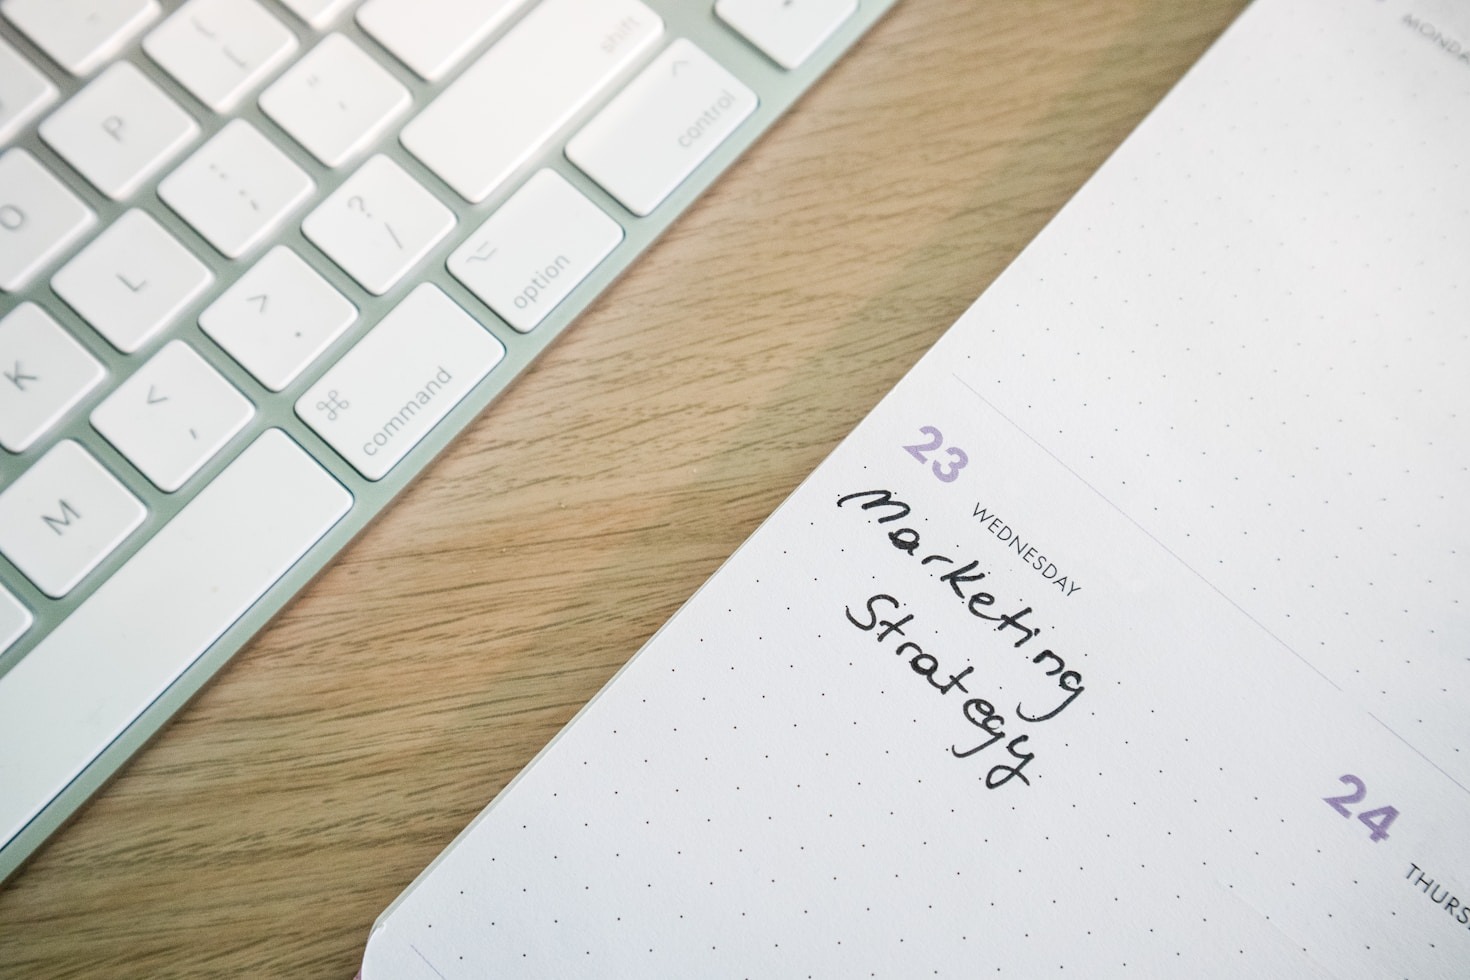 shift
control
P
option
O
L
command
K
M
MONDA
23
WEDNESDAY
Marketing
Strategy
24
THURS